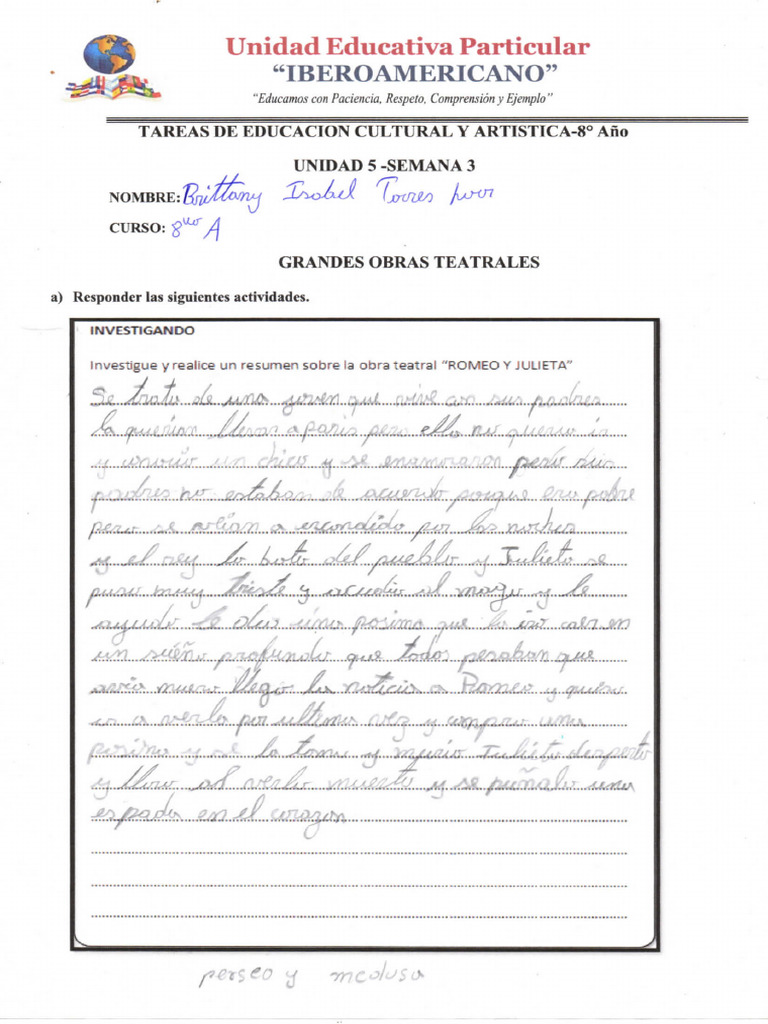 Unidad Educativa Particular
“IBEROAMERICANO”
“Educamos con Paciencia, Respeto, Comprensión y Ejemplo”
TAREAS DE EDUCACION CULTURAL Y ARTISTICA-8° Año
UNIDAD 5 -SEMANA 3
NOMBRE: Brittany Isabel Torres
CURSO: 8vo A
GRANDES OBRAS TEATRALES
a) Responder las siguientes actividades.
INVESTIGANDO
Investigue y realice un resumen sobre la obra teatral “ROMEO Y JULIETA”
Se trata de una joven que vive con sus padres
la querian llevar a paris pero ella no queria ir
y conocio un chico y se enamoraron pero sus
padres no estaban de acuerdo porque era pobre
pero se veían a escondido por las noches
y el rey lo boto del pueblo y Julieta se
puso muy triste y acudio al mago y le
ayudo le dio una posima que la iso caer en
un sueño profundo que todos pesaban que
avia muero llego la noticia a Romeo y quiso
ir a verla por ultima vez y compro una
posima y se la tomo y murio Julieta desperto
y lloro al verlo muerto y se puñalo una
espada en el corazon
perseo y medusa